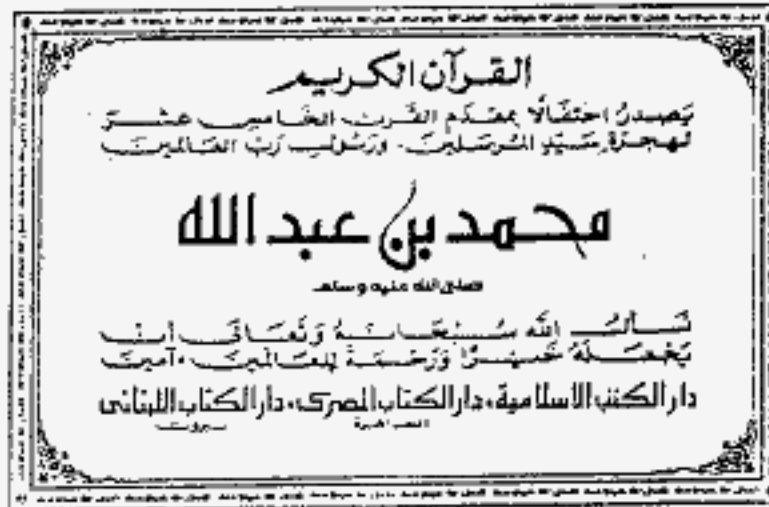 القرآن الكريم
يَصدرُ احتفالًا بمقدَم القرن الخَامس عشَر
لهجرَة سَيّدِ المُرسَلين، ورَسُول رَبّ العَالمين
محمد بن عبد الله
صلى الله عليه وسلم
نَسألُ الله سُبْحَانَهُ وَتَعَالَى أن
يَجْعَلَهُ خَيْرًا وَرَحْمَةً لِلعَالَمِين، آمين
دار الكتب الاسلامية، دار الكتاب المصرى، دار الكتاب اللبنانى
القاهرة بيروت